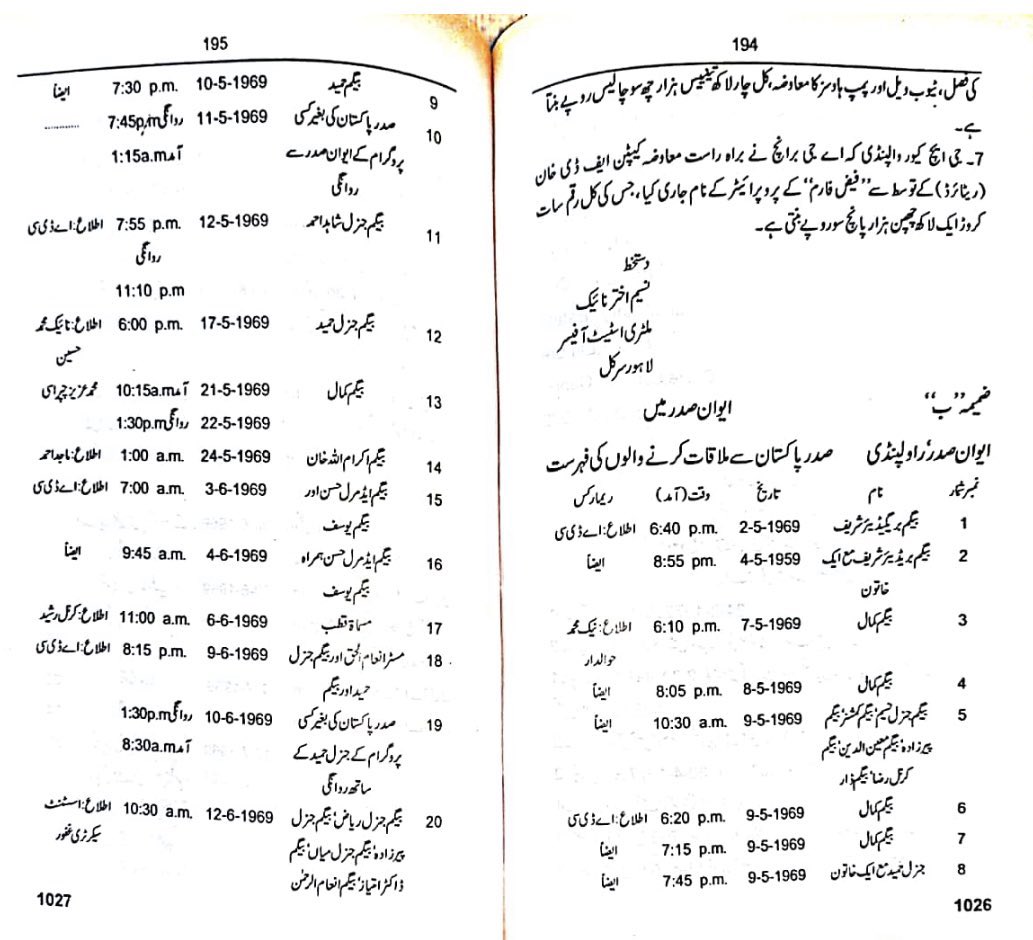 194
کی فصل، ٹیوب ویل اور پمپ ہاؤسز کا معاوضہ، کل چار لاکھ تینتیس ہزار چھ سو چالیس روپے بنتا
ہے۔
7۔ جی ایچ کیو راولپنڈی کہ اے جی برانچ نے براہ راست معاوضہ کیپٹن ایف ڈی خان
(ریٹائرڈ) کے توسط سے ’’فیض فارم‘‘ کے پروپرائیٹر کے نام جاری کیا، جس کی کل رقم سات
کروڑ ایک لاکھ چھپن ہزار پانچ سو روپے بنتی ہے۔
دستخط
نسیم اختر نائیک
ملٹری اسٹیٹ آفیسر
لاہور سرکل
ضمیمہ ’’ب‘‘
ایوان صدر میں
ایوان صدر‘ راولپنڈی صدر پاکستان سے ملاقات کرنے والوں کی فہرست
نمبر شمار نام تاریخ وقت (آمد) ریمارکس
1 بیگم بریگیڈیئر شریف 2-5-1969 6:40 p.m. اطلاع: اے ڈی سی
2 بیگم بریڈیئر شریف مع ایک 4-5-1959 8:55 pm. ایضاً
خاتون
3 بیگم کمال 7-5-1969 6:10 p.m. اطلاع: نیک محمد
حوالدار
4 بیگم کمال 8-5-1969 8:05 p.m. ایضاً
5 بیگم جنرل نسیم‘ بیگم کمشنر‘ بیگم 9-5-1969 10:30 a.m. ایضاً
پیرزادہ‘ بیگم معین الدین‘ بیگم
کرنل رضا‘ بیگم ڈار
6 بیگم کمال 9-5-1969 6:20 p.m. اطلاع: اے ڈی سی
7 بیگم کمال 9-5-1969 7:15 p.m. ایضاً
8 جنرل حمید مع ایک خاتون 9-5-1969 7:45 p.m. ایضاً
1026
195
9 بیگم حمید 10-5-1969 7:30 p.m. ایضاً
10 صدر پاکستان کی بغیر کسی 11-5-1969 روانگی 7:45p.m ............
پروگرام کے ایوان صدر سے آمد 1:15a.m
روانگی
11 بیگم جنرل شاہد احمد 12-5-1969 7:55 p.m. اطلاع: اے ڈی سی
روانگی
11:10 p.m
12 بیگم جنرل حمید 17-5-1969 6:00 p.m. اطلاع: نائیک محمد
حسین
13 بیگم کمال 21-5-1969 آمد 10:15a.m محمد عزیز چپراسی
22-5-1969 روانگی 1:30p.m
14 بیگم اکرام اللہ خان 24-5-1969 1:00 a.m. اطلاع: ماجد احمد
15 بیگم ایڈمرل حسن اور 3-6-1969 7:00 a.m. اطلاع: اے ڈی سی
بیگم یوسف
16 بیگم ایڈمرل حسن ہمراہ 4-6-1969 9:45 a.m. ایضاً
بیگم یوسف
17 مسماۃ قطب 6-6-1969 11:00 a.m. اطلاع: کرنل رشید
18 مسٹر انعام الحق اور بیگم جنرل 9-6-1969 8:15 p.m. اطلاع: اے ڈی سی
حمید اور بیگم
19 صدر پاکستان کی بغیر کسی 10-6-1969 روانگی 1:30p.m
پروگرام کے جنرل حمید کے آمد 8:30a.m
ساتھ روانگی
20 بیگم جنرل ریاض‘ بیگم جنرل 12-6-1969 10:30 a.m. اطلاع: اسٹنٹ
پیرزادہ‘ بیگم جنرل میاں‘ بیگم سیکرٹری غفور
ڈاکٹر امتیاز‘ بیگم انعام الرحمٰن
1027